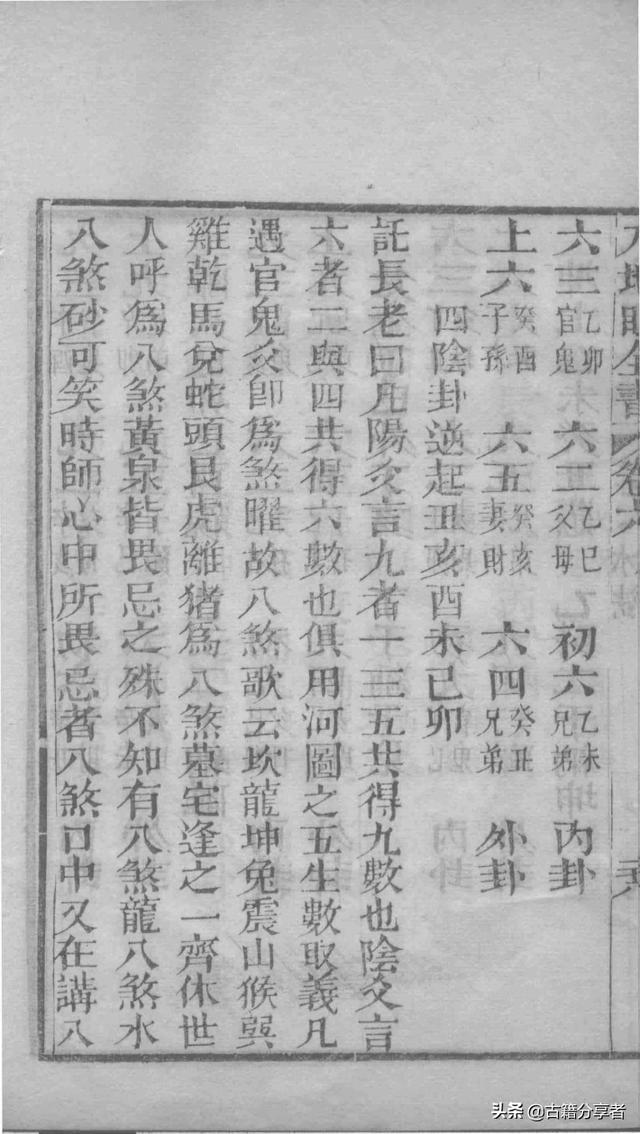 六三乙卯官鬼 六二乙巳父母 初六乙未兄弟 內卦
上六癸酉子孫 六五癸亥妻財 六四癸丑兄弟 外卦
四陰卦逆起丑亥酉未巳卯
託長老曰凡陽爻言九者一三五共得九數也陰爻言
六者二與四共得六數也俱用河圖之五生數取義凡
遇官鬼爻卽爲煞曜故八煞歌云坎龍坤兔震山猴巽
雞乾馬兌蛇頭艮虎離猪爲八煞墓宅逢之一齊休世
人呼爲八煞黃泉皆畏忌之殊不知有八煞龍八煞水
八煞砂可笑時師心中所畏忌者八煞口中又在講八
头条 @古籍分享者